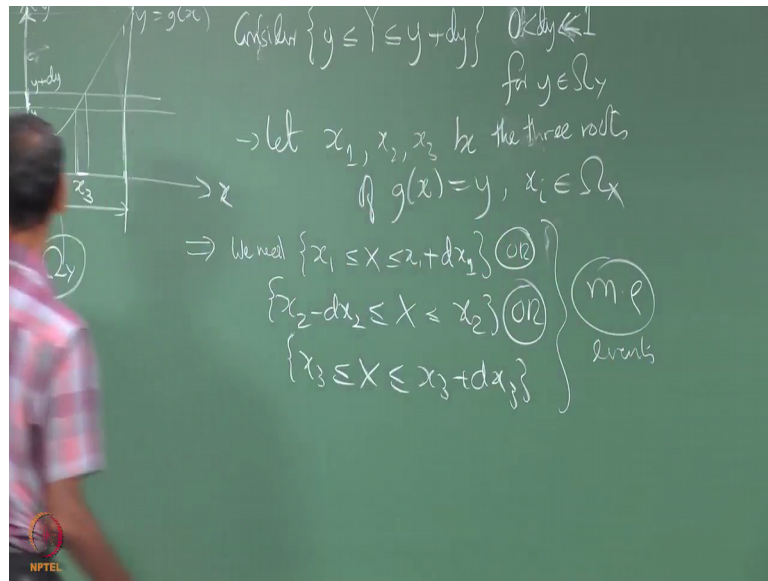 y = g(x)
Consider {y ≤ Y ≤ y+dy} 0<dy≪1
for y ∈ Ω_Y
y+dy
→ Let x₁, x₂, x₃ be the three roots
of g(x) = y, x_i ∈ Ω_X
x₃
x
⇒ We need {x₁ ≤ X ≤ x₁+dx₁} OR
{x₂-dx₂ ≤ X ≤ x₂} OR
{x₃ ≤ X ≤ x₃+dx₃}
m.e
events
Ω_Y
NPTEL